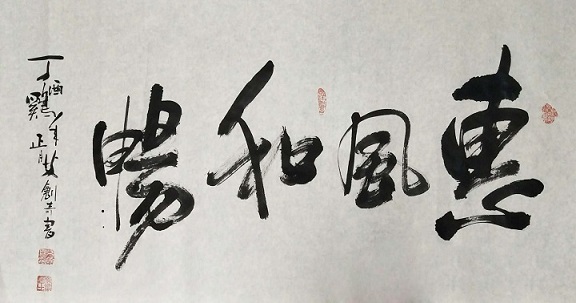 惠風和暢
丁酉鷄年正月創奇書